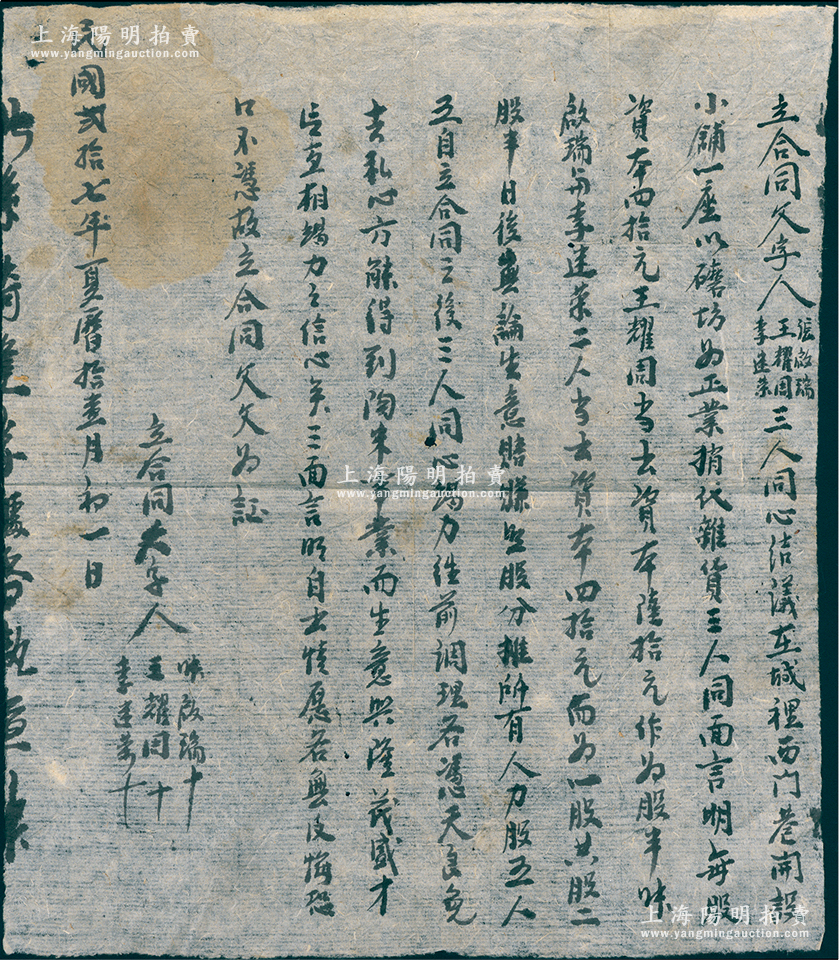 立合同文字人張啟瑞王耀同李逢荣三人同心结議在城裡西门巷開設
小舖一座以磨坊为正業捎代雜貨三人同面言明每股
資本四拾元王耀同出去資本陸拾元作为股半
啟瑞与李逢荣二人出去資本四拾元而为一股共股二
股半日後無論生意賠賺照股分摊所有人力股五人
五自立合同之後三人同心竭力往前調理各憑天良免
去私心方能得到陶朱事業而生意興隆茂盛才
互相竭力之信心矣三面言明自出情愿各無反悔恐
口不憑故立合同文字为証
立合同文字人
啟瑞十
王耀同十
李逢荣十
民國弍拾七年夏曆拾壹月初一日
上海陽明拍賣
www.yangmingauction.com
上海陽明拍賣
www.yangmingauction.com
上海陽明拍賣
www.yangmingauction.com